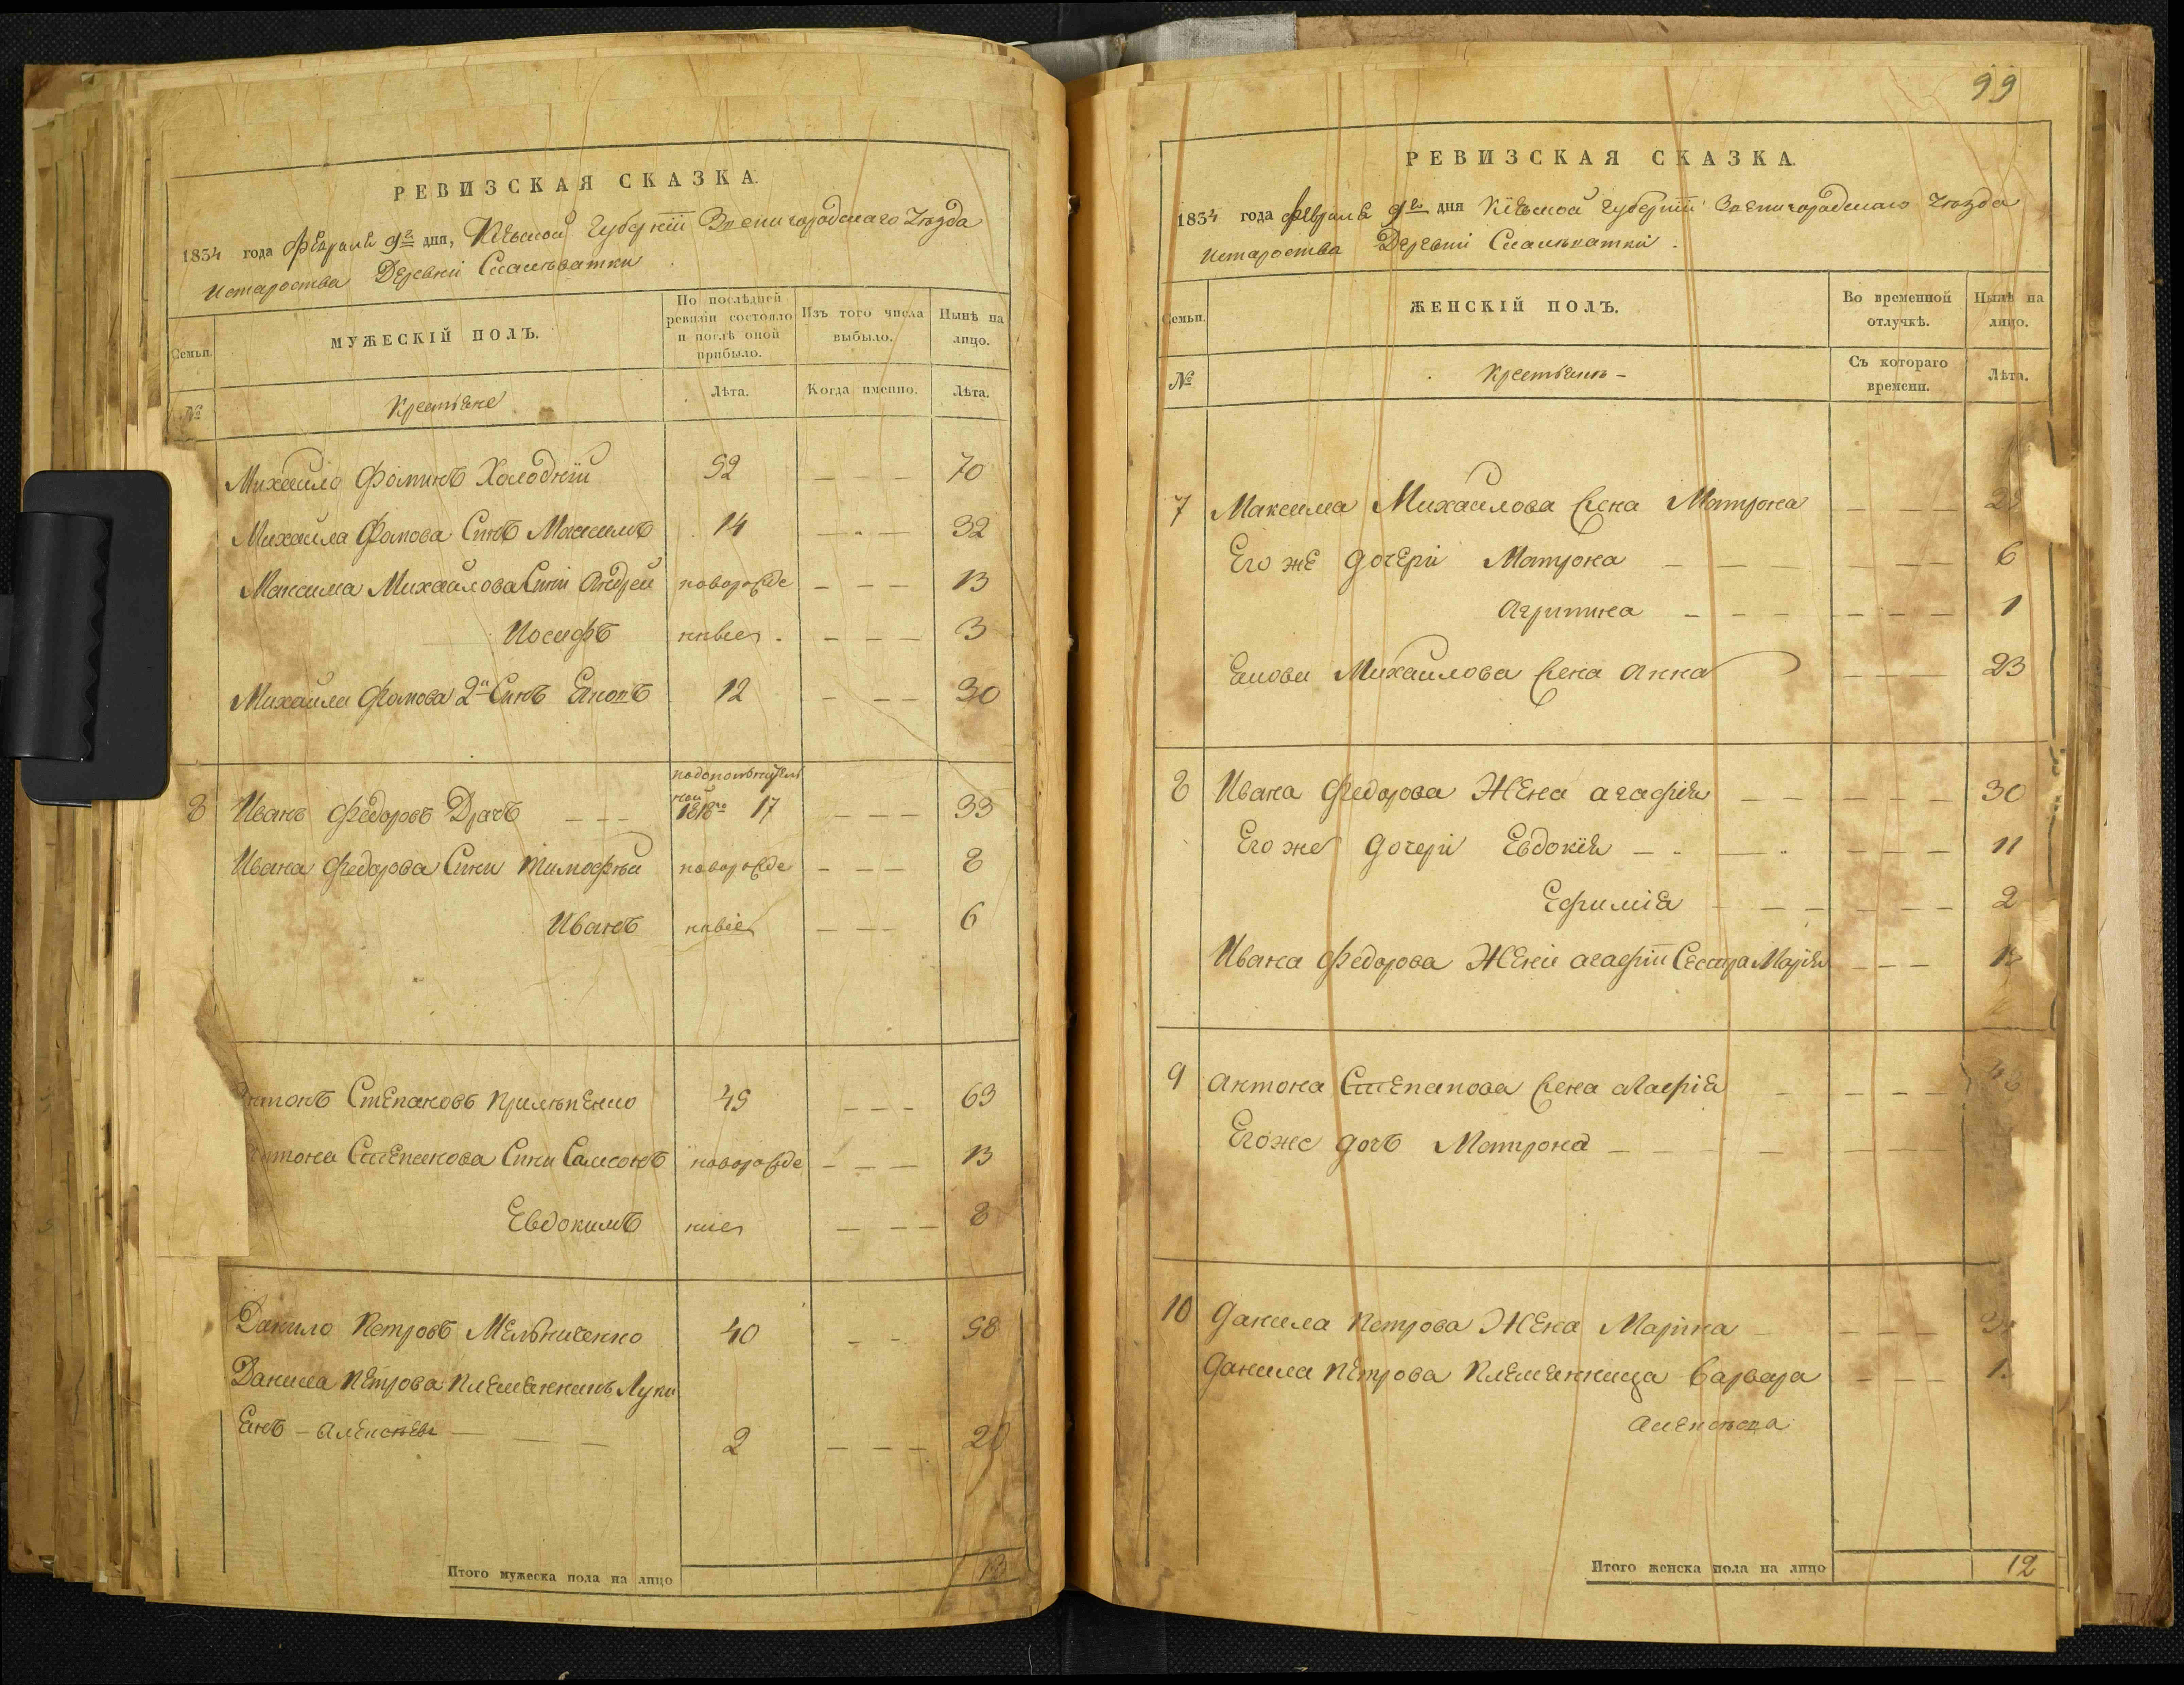 РЕВИЗСКАЯ СКАЗКА.
1834 года Февраля 9го дня, Кіевской Губерніи Звенигородскаго Уѣзда
и староства Деревни Смалковатки
Семьи.
МУЖЕСКІЙ ПОЛЪ.
По послѣдней ревизіи состояло и послѣ оной прибыло.
Изъ того числа выбыло.
Нынѣ на лицо.
№
Крестьяне
Лѣта.
Когда именно.
Лѣта.
Михайло Фоминъ Холодній 52 — — — 70
Михайла Фомова Синъ Максимъ 14 — — — 32
Максима Михайлова Сини Андрей новорожде — — — 13
Иосифъ нніе — — — 3
Михайла Фомова 2й Синъ Емонъ 12 — — — 30
8 Иванъ Федоровъ Драчъ — — — 1818го 17 — — — 33
Ивана Федорова Сини Тимофѣй новорожде — — — 8
Иванъ нніе — — — 6
нтонъ Степановъ Прилѣпенко 45 — — — 63
нтона Степанова Сини Самсонъ новорожде — — — 13
Евдокимъ ніе — — — 8
Данило Петровъ Мельниченко 40 — — 58
Данила Петрова племенникъ Луки
Енъ — Алексѣевъ — — — 2 — — — 20
Итого мужеска пола на лицо 13
99
РЕВИЗСКАЯ СКАЗКА.
1834 года Февраля 9го дня Кіевской Губерніи Звенигородскаго Уѣзда
и староства Деревни Смалковатки.
Семьи.
ЖЕНСКІЙ ПОЛЪ.
Во временной отлучкѣ.
Нынѣ на лицо.
№
Крестьянъ —
Съ котораго времени.
Лѣта.
7 Максима Михайлова жена Матрона — — — 2
Его же дочери Матрона — — — — — — — 6
Агрипина — — — — — — 1
Емова Михайлова жена Анна — — — 23
8 Ивана Федорова Жена Агафія — — — — — 30
Его же дочери Евдокія — — — — — 11
Ефимія — — — — — — 2
Ивана Федорова Жени Агафіи Сестра Марія — — — 1
9 Антона Степанова жена Агафія — — — —
Его же дочъ Матрона — — — — — — —
10 Данила Петрова Жена Марина — — — — 3
Данила Петрова Племенница Варвара — — — 1
Алексѣева
Итого женска пола на лицо 12